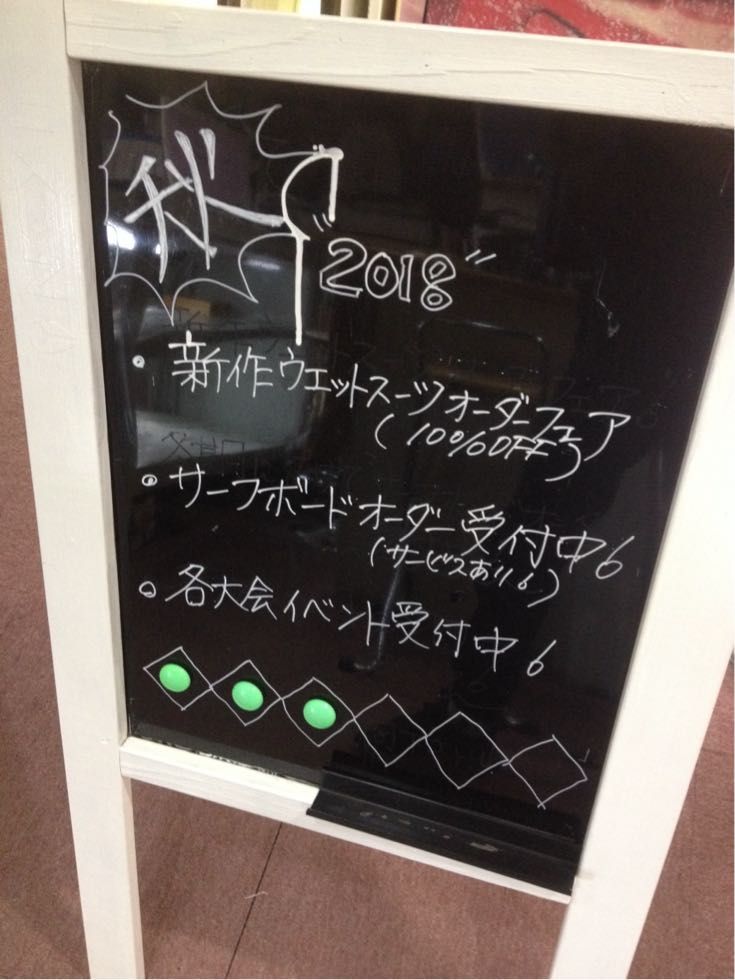 2018"
・新作ウェットスーツオーダーフェア
(10%OFF)
・サーフボードオーダー受付中。
(サービスあり。)
・各大会イベント受付中。